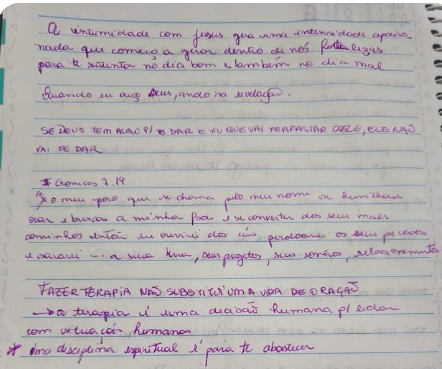 A intimidade com Jesus gera uma intensidade apaixo
nada que começa a gerar dentro de nós fortalezas
para te sustentar no dia bom e também no dia mal
Quando eu ouço Deus, ando na revelação.
SE DEUS TEM ALGO P/ DAR E VIU QUE VAI TE AFASTAR DELE, ELE NÃO
VAI TE DAR
Cronicas 7.14
Se o meu povo que se chama pelo meu nome se humilhar
orar e buscar a minha face e se converter dos seus maus
caminhos então eu ouvirei dos céus perdoarei os seus pecados
e sararei ... a sua terra, seus projetos, seus sonhos, relacionamentos
FAZER TERAPIA NÃO SUBSTITUI UMA VIDA DE ORAÇÃO
→ a terapia é uma decisão humana p/ lidar
com situações humanas
* uma disciplina espiritual é para te abastecer